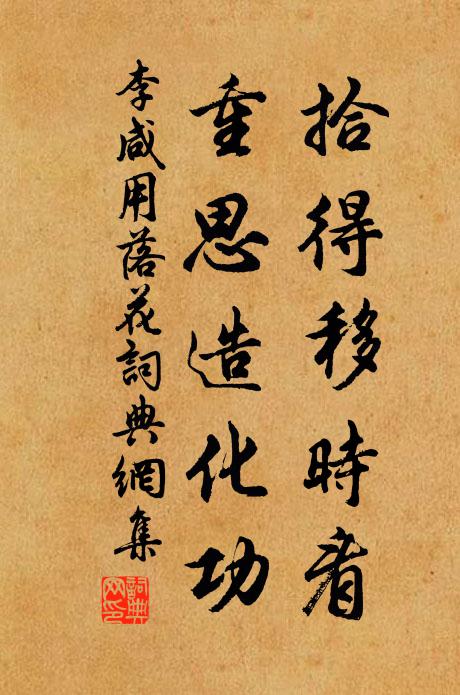 拾得移時看
重思造化功
李咸用落花詞典網集
詞典
网印